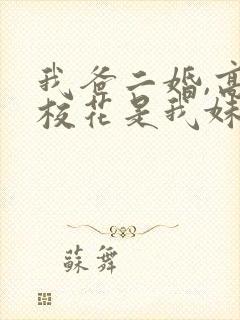 我爸二婚,高
校花是我妹
蘇舞